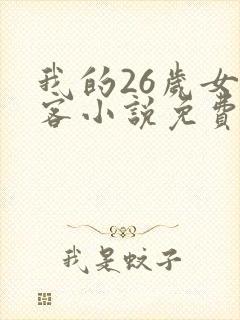 我的26歲女
客小說免費
我是蚊子